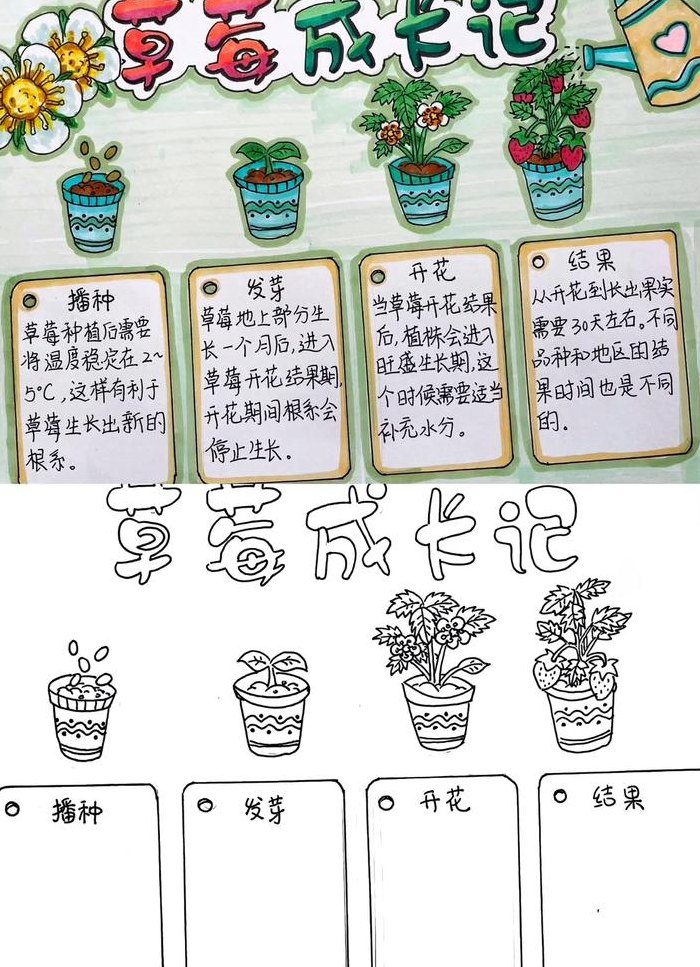 草莓成长记
播种
草莓种植后需要
将温度稳定在2~
5°C，这样有利于
草莓生长出新的
根系。
发芽
草莓地上部分生
长一个月后，进入
草莓开花结果期，
开花期间根系会
停止生长。
开花
当草莓开花结果
后，植株会进入
旺盛生长期，这
个时候需要适当
补充水分。
结果
从开花到长出果实
需要30天左右。不同
品种和地区的结
果时间也是不同
的。
草莓成长记
播种
发芽
开花
结果